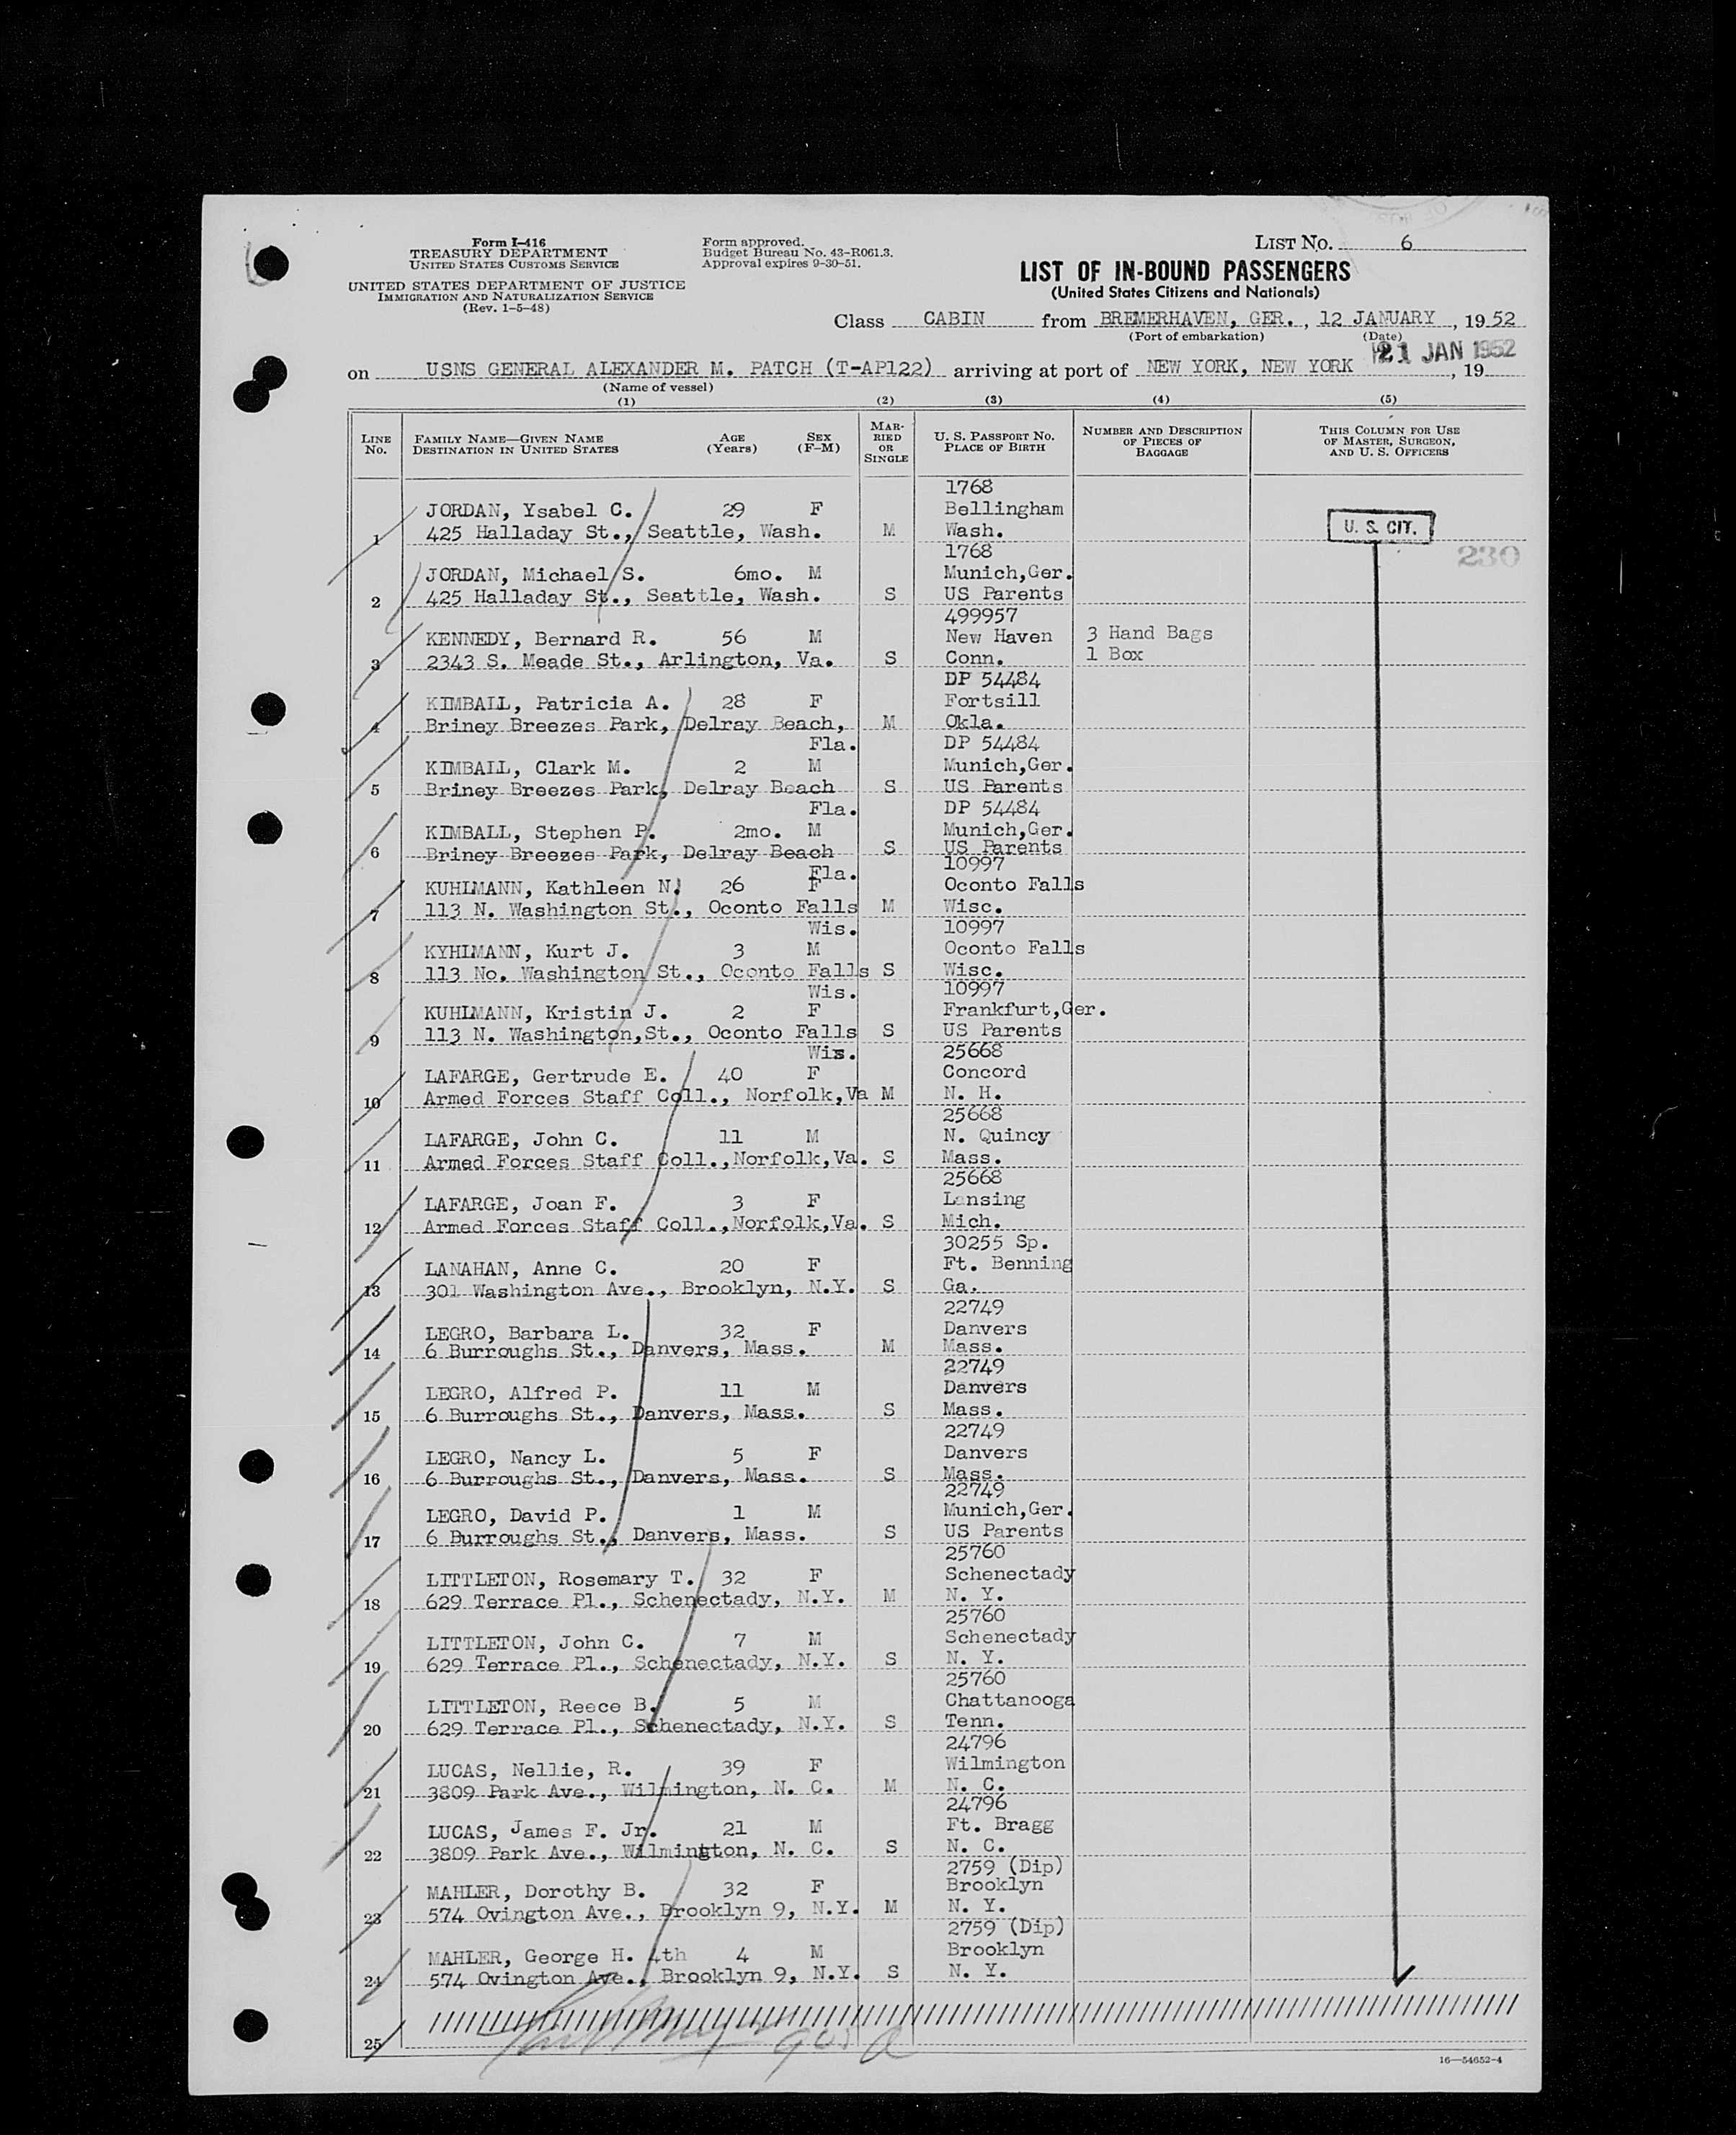 Form I-416
TREASURY DEPARTMENT
UNITED STATES CUSTOMS SERVICE
UNITED STATES DEPARTMENT OF JUSTICE
IMMIGRATION AND NATURALIZATION SERVICE
(Rev. 1-5-48)
Form approved.
Budget Bureau No. 43-R061.3.
Approval expires 9-30-51.
LIST No. 6
LIST OF IN-BOUND PASSENGERS
(United States Citizens and Nationals)
Class CABIN from BREMERHAVEN, GER., 12 JANUARY, 1952
(Port of embarkation) (Date)
21 JAN 1952
on USNS GENERAL ALEXANDER M. PATCH (T-AP122) arriving at port of NEW YORK, NEW YORK, 19
(Name of vessel)
(1) (2) (3) (4) (5)
LINE No. FAMILY NAME—GIVEN NAME DESTINATION IN UNITED STATES AGE (Years) SEX (F-M) MARRIED OR SINGLE U. S. PASSPORT NO. PLACE OF BIRTH NUMBER AND DESCRIPTION OF PIECES OF BAGGAGE THIS COLUMN FOR USE OF MASTER, SURGEON, AND U. S. OFFICERS
1768
JORDAN, Ysabel C. 29 F Bellingham
1 425 Halladay St., Seattle, Wash. M Wash.
U. S. CIT.
230
1768
JORDAN, Michael S. 6mo. M Munich,Ger.
2 425 Halladay St., Seattle, Wash. S US Parents
499957
KENNEDY, Bernard R. 56 M New Haven 3 Hand Bags
3 2343 S. Meade St., Arlington, Va. S Conn. 1 Box
DP 54484
KIMBALL, Patricia A. 28 F Fortsill
4 Briney Breezes Park, Delray Beach, M Okla.
Fla. DP 54484
KIMBALL, Clark M. 2 M Munich,Ger.
5 Briney Breezes Park, Delray Beach S US Parents
Fla. DP 54484
KIMBALL, Stephen P. 2mo. M Munich,Ger.
6 Briney Breezes Park, Delray Beach S US Parents
Fla. 10997
KUHLMANN, Kathleen N. 26 F Oconto Falls
7 113 N. Washington St., Oconto Falls M Wisc.
Wis. 10997
KYHLMANN, Kurt J. 3 M Oconto Falls
8 113 No. Washington St., Oconto Falls S Wisc.
Wis. 10997
KUHLMANN, Kristin J. 2 F Frankfurt,Ger.
9 113 N. Washington,St., Oconto Falls S US Parents
Wis. 25668
LAFARGE, Gertrude E. 40 F Concord
10 Armed Forces Staff Coll., Norfolk,Va M N. H.
25668
LAFARGE, John C. 11 M N. Quincy
11 Armed Forces Staff Coll.,Norfolk,Va. S Mass.
25668
LAFARGE, Joan F. 3 F Lansing
12 Armed Forces Staff Coll.,Norfolk,Va. S Mich.
30255 Sp.
LANAHAN, Anne C. 20 F Ft. Benning
13 301 Washington Ave., Brooklyn, N.Y. S Ga.
22749
LEGRO, Barbara L. 32 F Danvers
14 6 Burroughs St., Danvers, Mass. M Mass.
22749
LEGRO, Alfred P. 11 M Danvers
15 6 Burroughs St., Danvers, Mass. S Mass.
22749
LEGRO, Nancy L. 5 F Danvers
16 6 Burroughs St., Danvers, Mass. S Mass.
22749
LEGRO, David P. 1 M Munich,Ger.
17 6 Burroughs St., Danvers, Mass. S US Parents
25760
LITTLETON, Rosemary T. 32 F Schenectady
18 629 Terrace Pl., Schenectady, N.Y. M N. Y.
25760
LITTLETON, John C. 7 M Schenectady
19 629 Terrace Pl., Schenectady, N.Y. S N. Y.
25760
LITTLETON, Reece B. 5 M Chattanooga
20 629 Terrace Pl., Schenectady, N.Y. S Tenn.
24796
LUCAS, Nellie, R. 39 F Wilmington
21 3809 Park Ave., Wilmington, N. C. M N. C.
24796
LUCAS, James F. Jr. 21 M Ft. Bragg
22 3809 Park Ave., Wilmington, N. C. S N. C.
2759 (Dip)
MAHLER, Dorothy B. 32 F Brooklyn
23 574 Ovington Ave., Brooklyn 9, N.Y. M N. Y.
2759 (Dip)
MAHLER, George H. 4th 4 M Brooklyn
24 574 Ovington Ave., Brooklyn 9, N.Y. S N. Y.
25
16—54652-4